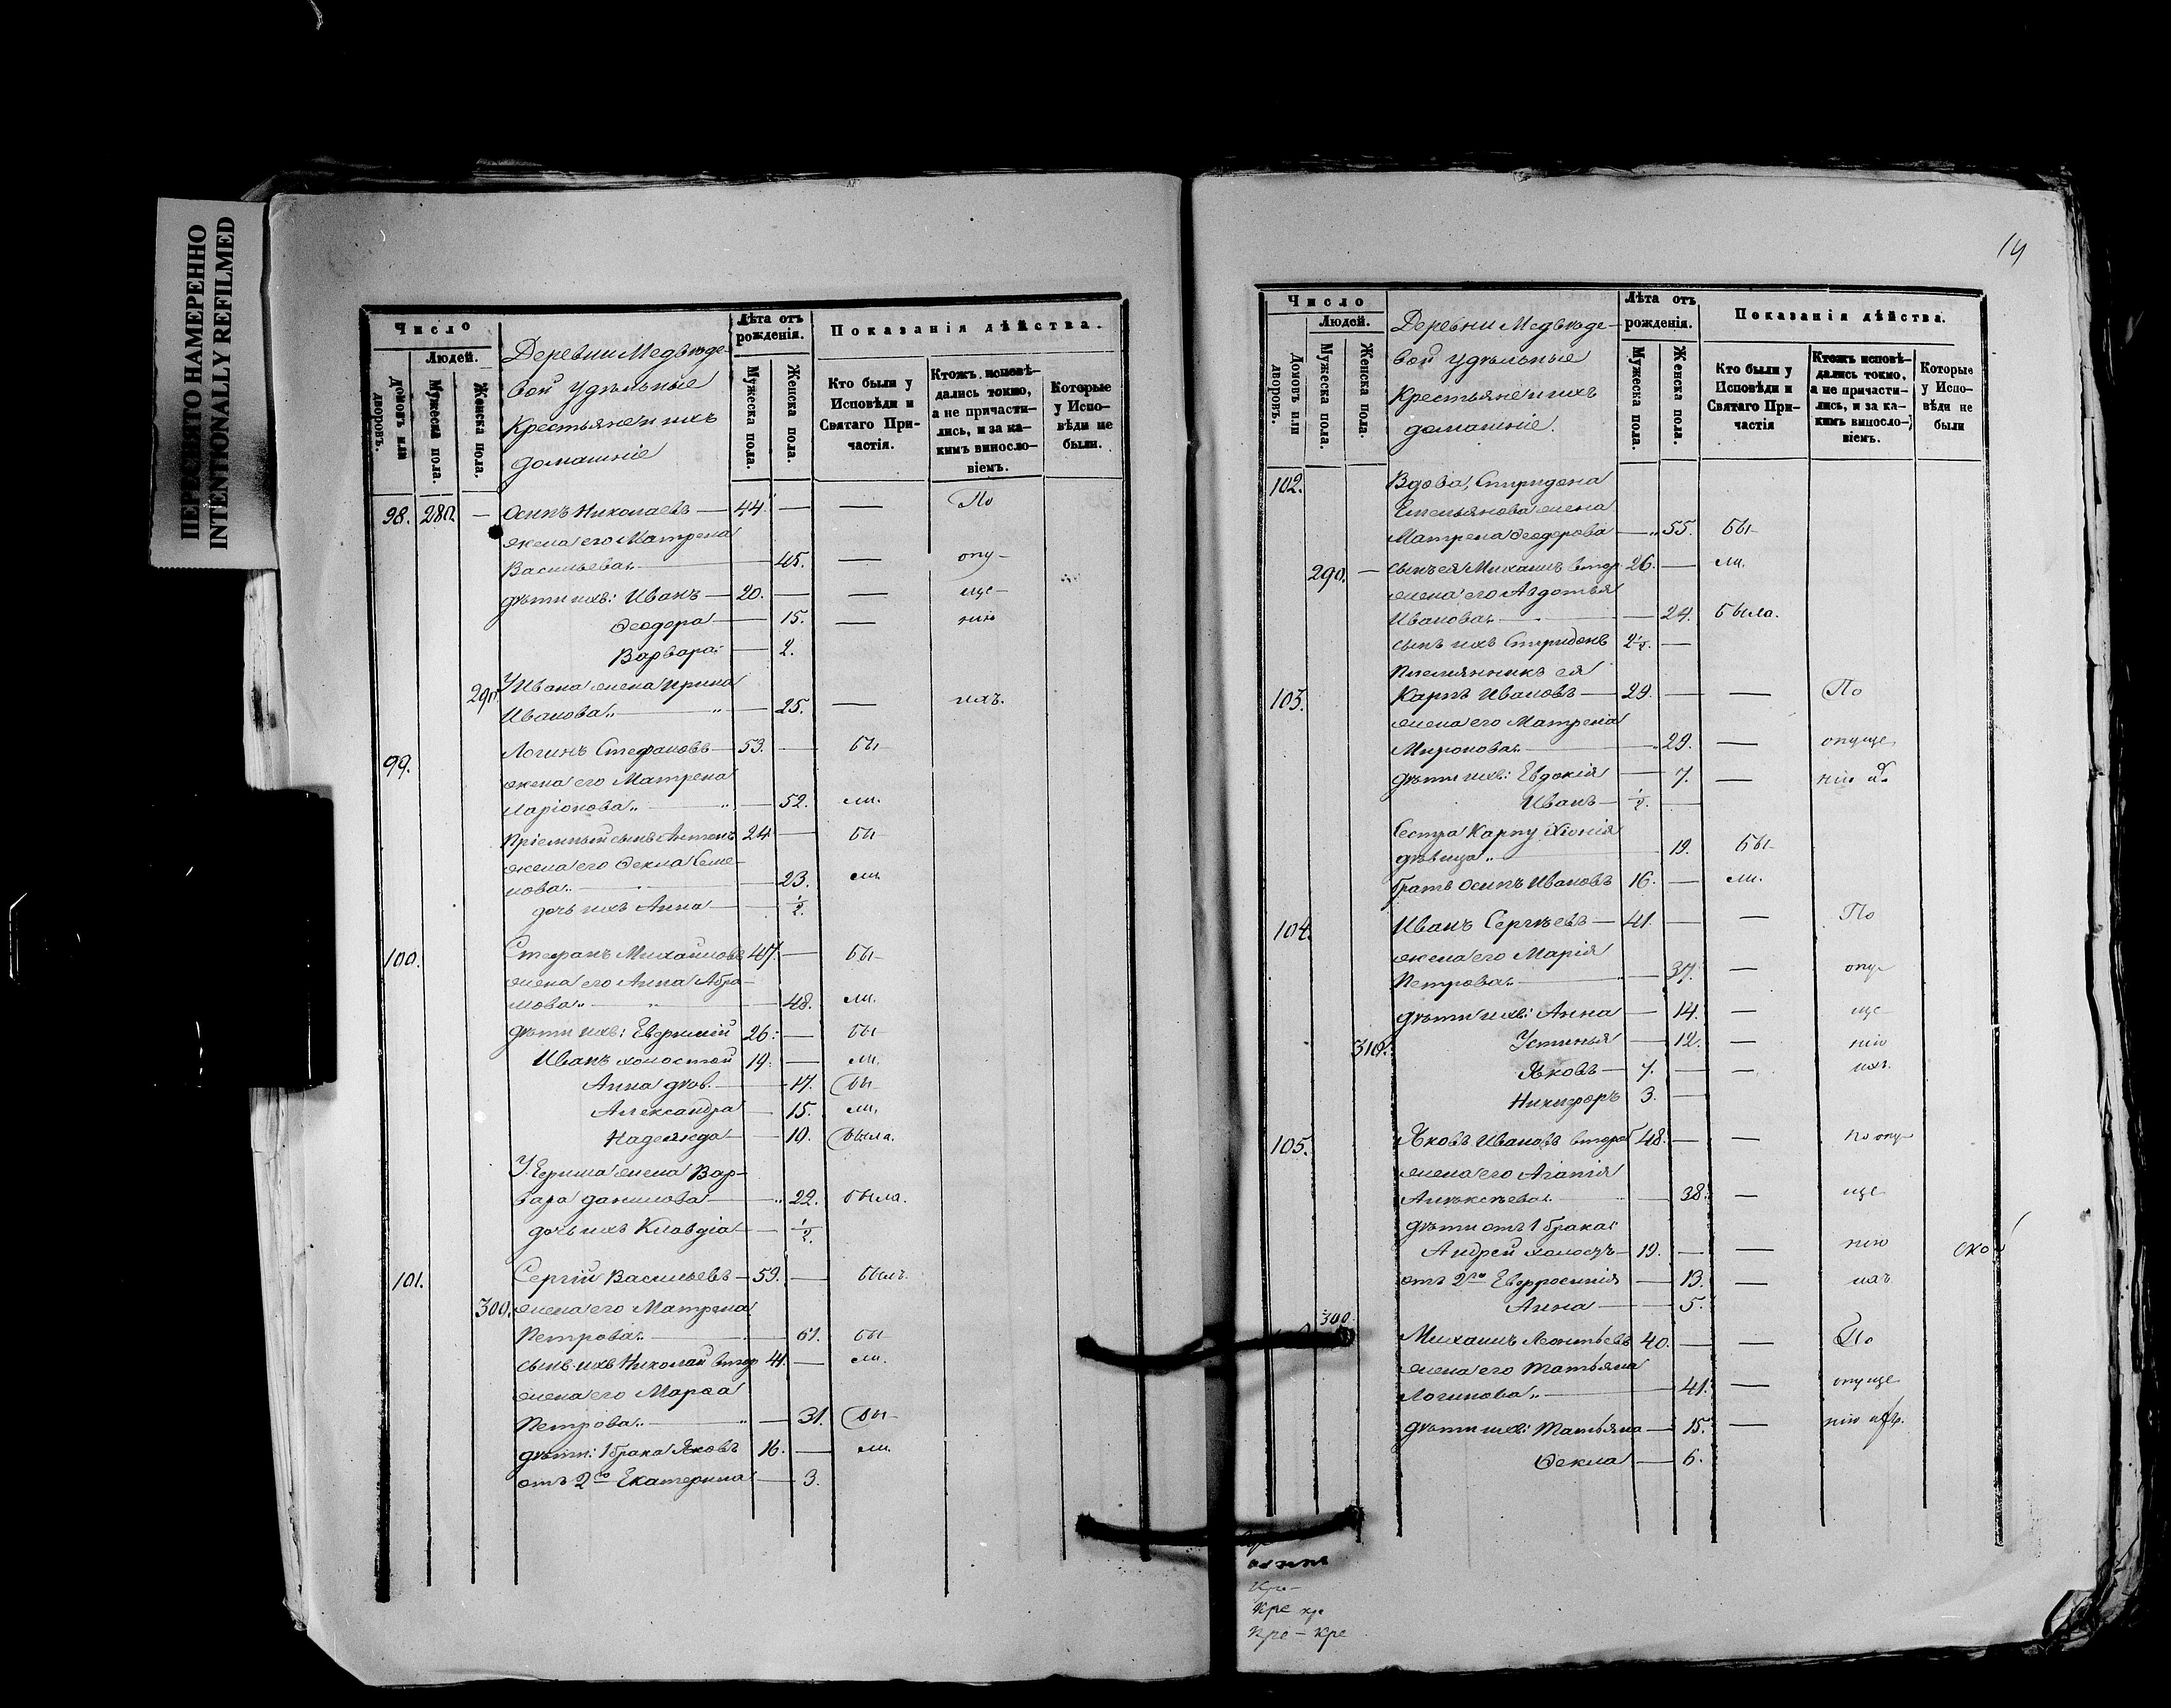 ПЕРЕСНЯТО НАМЕРЕННО
INTENTIONALLY REFILMED
Число
Людей.
Домовъ или дворовъ.
Мужеска пола.
Женска пола.
Деревни Медвѣде-
вой удѣльные
Крестьяне и ихъ
домашніе
Лѣта отъ рожденія.
Мужеска пола.
Женска пола.
Показанія дѣйства.
Кто были у Исповѣди и Святаго Причастія.
Ктожъ исповѣдались токмо, а не причастились, и за какимъ винословіемъ.
Которые у Исповѣди не были.
98. — Осипъ Николаевъ — 44. — — По
жена его Матрена
Васильева — 45. — опу-
дѣти ихъ: Иванъ — 20. — — ще-
Ѳеодора — 15. — нію
Варвара — 2.
У Ивана жена Ирина
Иванова — 25. — ихъ.
99. Логинъ Стефановъ — 53. — бы-
жена его Матрена
Ларіонова — 52. ли.
Пріемный сынъ Антонъ 24 — бы-
жена его Ѳекла Семе-
нова — 23. ли
дочь ихъ Анна — 1/2.
100. Стефанъ Михайловъ 47. — бы-
жена его Анна Абра-
мова — 48. ли.
дѣти ихъ: Евфимій 26. — бы-
Иванъ холостой 19. — ли.
Анна дѣв. — 17. бы
Александра — 15. ли.
Надежда — 10. была.
У Ефима жена Вар-
вара Данилова — 22. была.
дочь ихъ Клавдіа — 1/2.
101. Сергій Васильевъ — 59. — былъ
300. жена его Матрена
Петрова — 61. бы
сынъ ихъ Николай втор 41. — ли.
жена его Марѳа
Петрова — 31. бы-
дѣти: 1 брака Яковъ 16. — ли.
отъ 2го Екатерина — 3.
14
Число
Людей.
Домовъ или дворовъ.
Мужеска пола.
Женска пола.
Деревни Медвѣде-
вой удѣльные
Крестьяне и ихъ
домашніе.
Лѣта отъ рожденія.
Мужеска пола.
Женска пола.
Показанія дѣйства.
Кто были у Исповѣди и Святаго Причастія
Ктожъ исповѣдались токмо, а не причастились, и за какимъ винословіемъ.
Которые у Исповѣди не были
102. Вдова, Спиридона
Емельянова жена
Матрена Ѳеодорова — 55. бы-
290. — сынъ ея Михаилъ втор 26. — ли.
жена его Авдотья
Иванова — 24. была.
сынъ ихъ Спиридонъ 2 1/2. —
Племянникъ ея
103. Карпъ Ивановъ — 29. — — По
жена его Матрена
Миронова — 29. — опуще
дѣти ихъ: Евдокія — 7. — нію
Иванъ — 1/2. —
Сестра Карпу Хіонія
дѣвица — 19. бы-
братъ Осипъ Ивановъ 16. — ли.
104. Иванъ Сергѣевъ — 41. — — По
жена его Марія
Петрова — 37. — опу-
дѣти ихъ: Анна — 14. — ще-
310. Устинья — 12. — нію
Яковъ — 7. — — ихъ.
Никифоръ 3. —
105. Яковъ Ивановъ второй 48. — — по опу-
жена его Агапія
Алѣксѣева — 38. — ще-
дѣти отъ 1 брака:
Андрей холостъ — 19. — — нію
отъ 2го Евфросинія — 13. — ихъ
Анна — 5.
300. Михаилъ Леонтьевъ 40. — — По
жена его Татьяна
Логинова — 41. — опуще
дѣти ихъ: Татьяна — 15. — нію
Ѳекла — 6.
Кре
Кре - кре